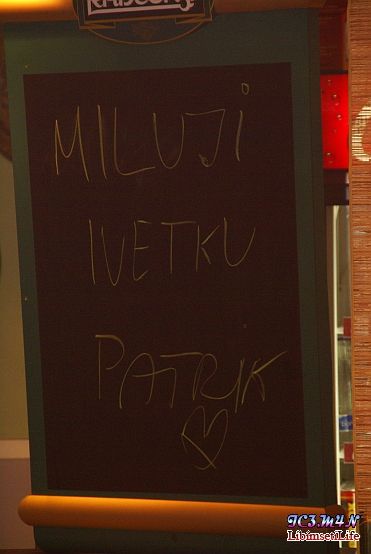 MILUJi
IVETKU
PATRIK
IC3.M4N
LibimsetiLife